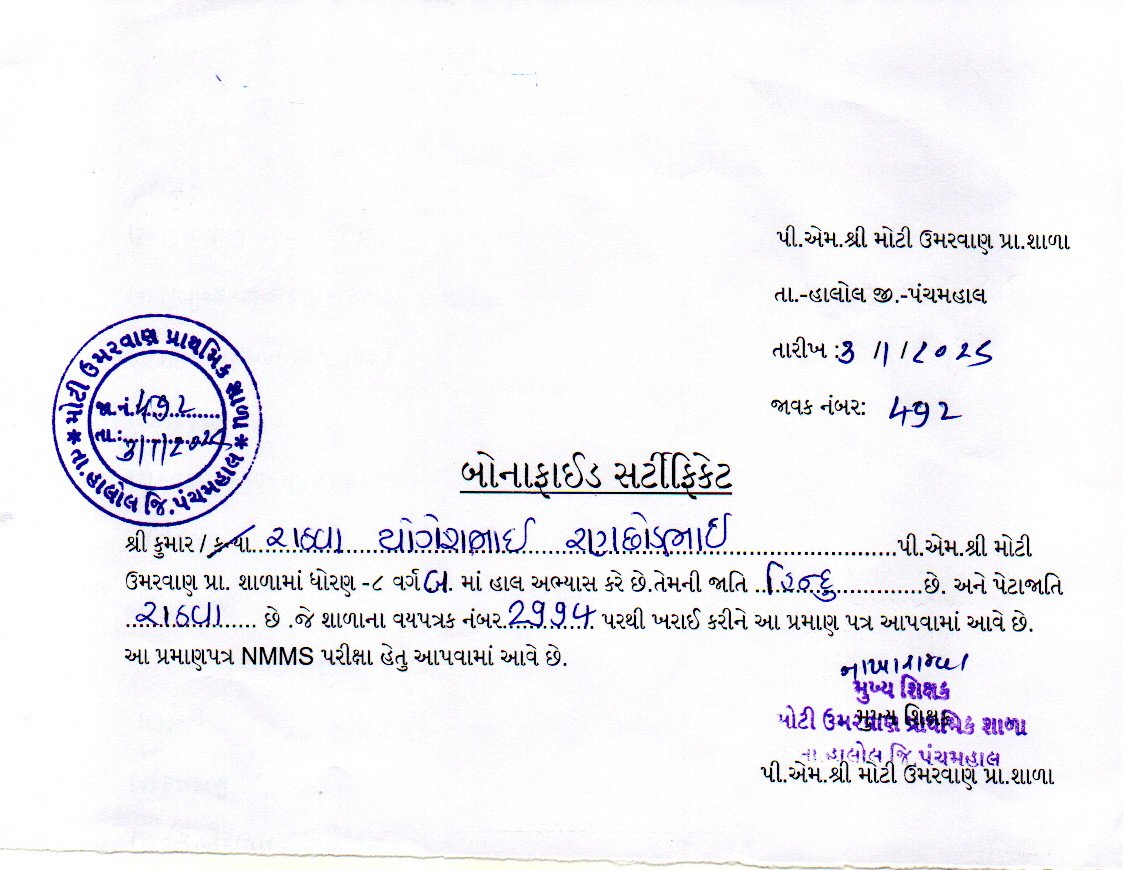 પી.એમ.શ્રી મોટી ઉમરવાણ પ્રા.શાળા
તા.-હાલોલ જી.-પંચમહાલ
તારીખ :3 /1/2025
જાવક નંબર: 492
* મોટી ઉમરવાણ પ્રાથમિક શાળા *
જા.નં. 492
તા.: 3/1/2025
તા.હાલોલ જિ.પંચમહાલ
બોનાફાઈડ સર્ટીફિકેટ
શ્રી કુમાર / કન્યા રાઠવા યોગેશભાઈ રણછોડભાઈ પી.એમ.શ્રી મોટી
ઉમરવાણ પ્રા. શાળામાં ધોરણ -૮ વર્ગ બ. માં હાલ અભ્યાસ કરે છે.તેમની જાતિ હિન્દુ છે. અને પેટાજાતિ
રાઠવા છે .જે શાળાના વયપત્રક નંબર 2994 પરથી ખરાઈ કરીને આ પ્રમાણ પત્ર આપવામાં આવે છે.
આ પ્રમાણપત્ર NMMS પરીક્ષા હેતુ આપવામાં આવે છે.
મુખ્ય શિક્ષક
મુખ્ય શિક્ષક
મોટી ઉમરવાણ પ્રાથમિક શાળા
તા.હાલોલ જિ.પંચમહાલ
પી.એમ.શ્રી મોટી ઉમરવાણ પ્રા.શાળા